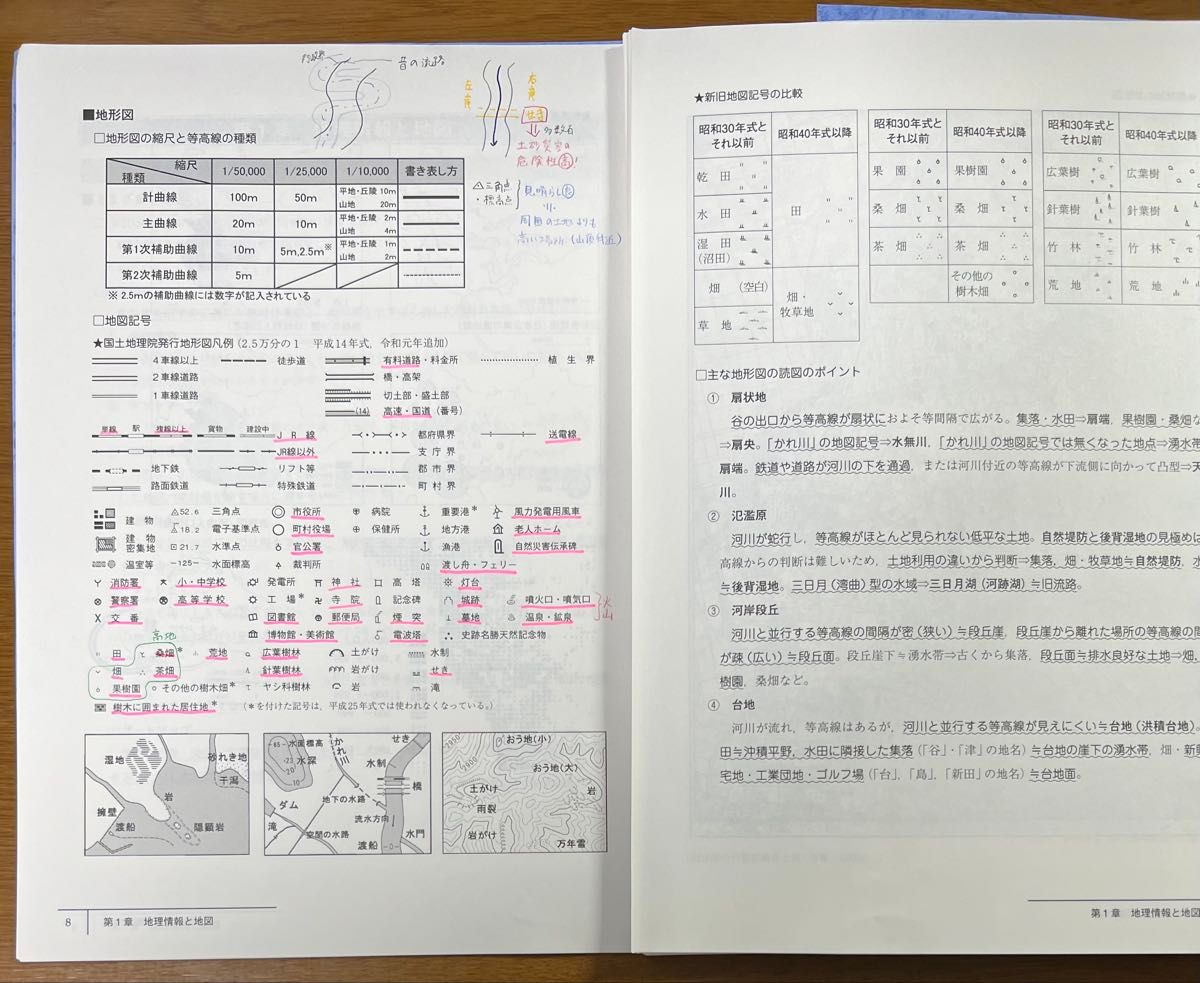 昔の流路
左岸
右岸
■地形図
□地形図の縮尺と等高線の種類
種類 縮尺 1/50,000 1/25,000 1/10,000 書き表し方
計曲線 100m 50m 平地・丘陵 10m 山地 20m
主曲線 20m 10m 平地・丘陵 2m 山地 4m
第1次補助曲線 10m 5m,2.5m※ 平地・丘陵 1m 山地 2m
第2次補助曲線 5m
※ 2.5mの補助曲線には数字が記入されている
土砂災害の
危険性高
△三角点
・標高点
見晴らし
周囲の土地よりも
高いところ(山頂付近)
□地図記号
★国土地理院発行地形図凡例(2.5万分の1 平成14年式,令和元年追加)
4車線以上 徒歩道 有料道路・料金所 植生界
2車線道路 橋・高架
1車線道路 切土部・盛土部
(14) 高速・国道(番号)
単線 駅 複線以上 貨物 建設中 JR線 都府県界 送電線
JR線以外 支庁界
地下鉄 リフト等 郡市界
路面鉄道 特殊鉄道 町村界
建物 △52.6 三角点 市役所 病院 重要港* 風力発電用風車
18.2 電子基準点 町村役場 保健所 地方港 老人ホーム
建物密集地 21.7 水準点 官公署 漁港 自然災害伝承碑
温室等 -125- 水面標高 裁判所 渡し舟・フェリー
消防署 小・中学校 発電所 神社 高塔 灯台
警察署 高等学校 工場* 寺院 記念碑 城跡 噴火口・噴気口
交番 図書館 郵便局 煙突 墓地 温泉・鉱泉
火山
博物館・美術館 電波塔 史跡名勝天然記念物
高地
田 桑畑* 荒地 広葉樹林 土がけ 水制
畑 茶畑 針葉樹林 岩がけ せき
果樹園 その他の樹木畑* ヤシ科樹林 岩 滝
樹木に囲まれた居住地* (*を付けた記号は,平成25年式では使われなくなっている。)
湿地 砂れき地 干潟 岩 擁壁 渡船 隠顕岩
水面標高 水深 かれ川 せき 水制 橋 地下の水路 ダム 流水方向 滝 空間の水路 水門 渡船
おう地(小) おう地(大) 土がけ 岩 雨裂 岩がけ 万年雪
8 第1章 地理情報と地図
★新旧地図記号の比較
昭和30年式とそれ以前 昭和40年式以降
乾田 田
水田
湿田(沼田)
畑(空白) 畑・牧草地
草地
昭和30年式とそれ以前 昭和40年式以降
果園 果樹園
桑畑 桑畑
茶畑 茶畑
その他の樹木畑
昭和30年式とそれ以前 昭和40年式以降
広葉樹 広葉樹
針葉樹 針葉樹
竹林 竹林
荒地 荒地
□主な地形図の読図のポイント
① 扇状地
谷の出口から等高線が扇状におよそ等間隔で広がる。集落・水田⇒扇端,果樹園・桑畑な
⇒扇央。「かれ川」の地図記号⇒水無川,「かれ川」の地図記号では無くなった地点⇒湧水帯
扇端。鉄道や道路が河川の下を通過,または河川付近の等高線が下流側に向かって凸型⇒天
川。
② 氾濫原
河川が蛇行し,等高線がほとんど見られない低平な土地。自然堤防と後背湿地の見極めは
高線からの判断は難しいため,土地利用の違いから判断⇒集落,畑・牧草地≒自然堤防,水
≒後背湿地。三日月(湾曲)型の水域⇒三日月湖(河跡湖)≒旧流路。
③ 河岸段丘
河川と並行する等高線の間隔が密(狭い)≒段丘崖,段丘崖から離れた場所の等高線の間
が疎(広い)≒段丘面。段丘崖下≒湧水帯⇒古くから集落,段丘面≒排水良好な土地⇒畑,
樹園,桑畑など。
④ 台地
河川が流れ,等高線はあるが,河川と並行する等高線が見えにくい≒台地(洪積台地)。
田≒沖積平野,水田に隣接した集落(「谷」・「津」の地名)≒台地の崖下の湧水帯,畑・新興
宅地・工業団地・ゴルフ場(「台」,「島」,「新田」の地名)≒台地面。
第1章 地理情報と地図